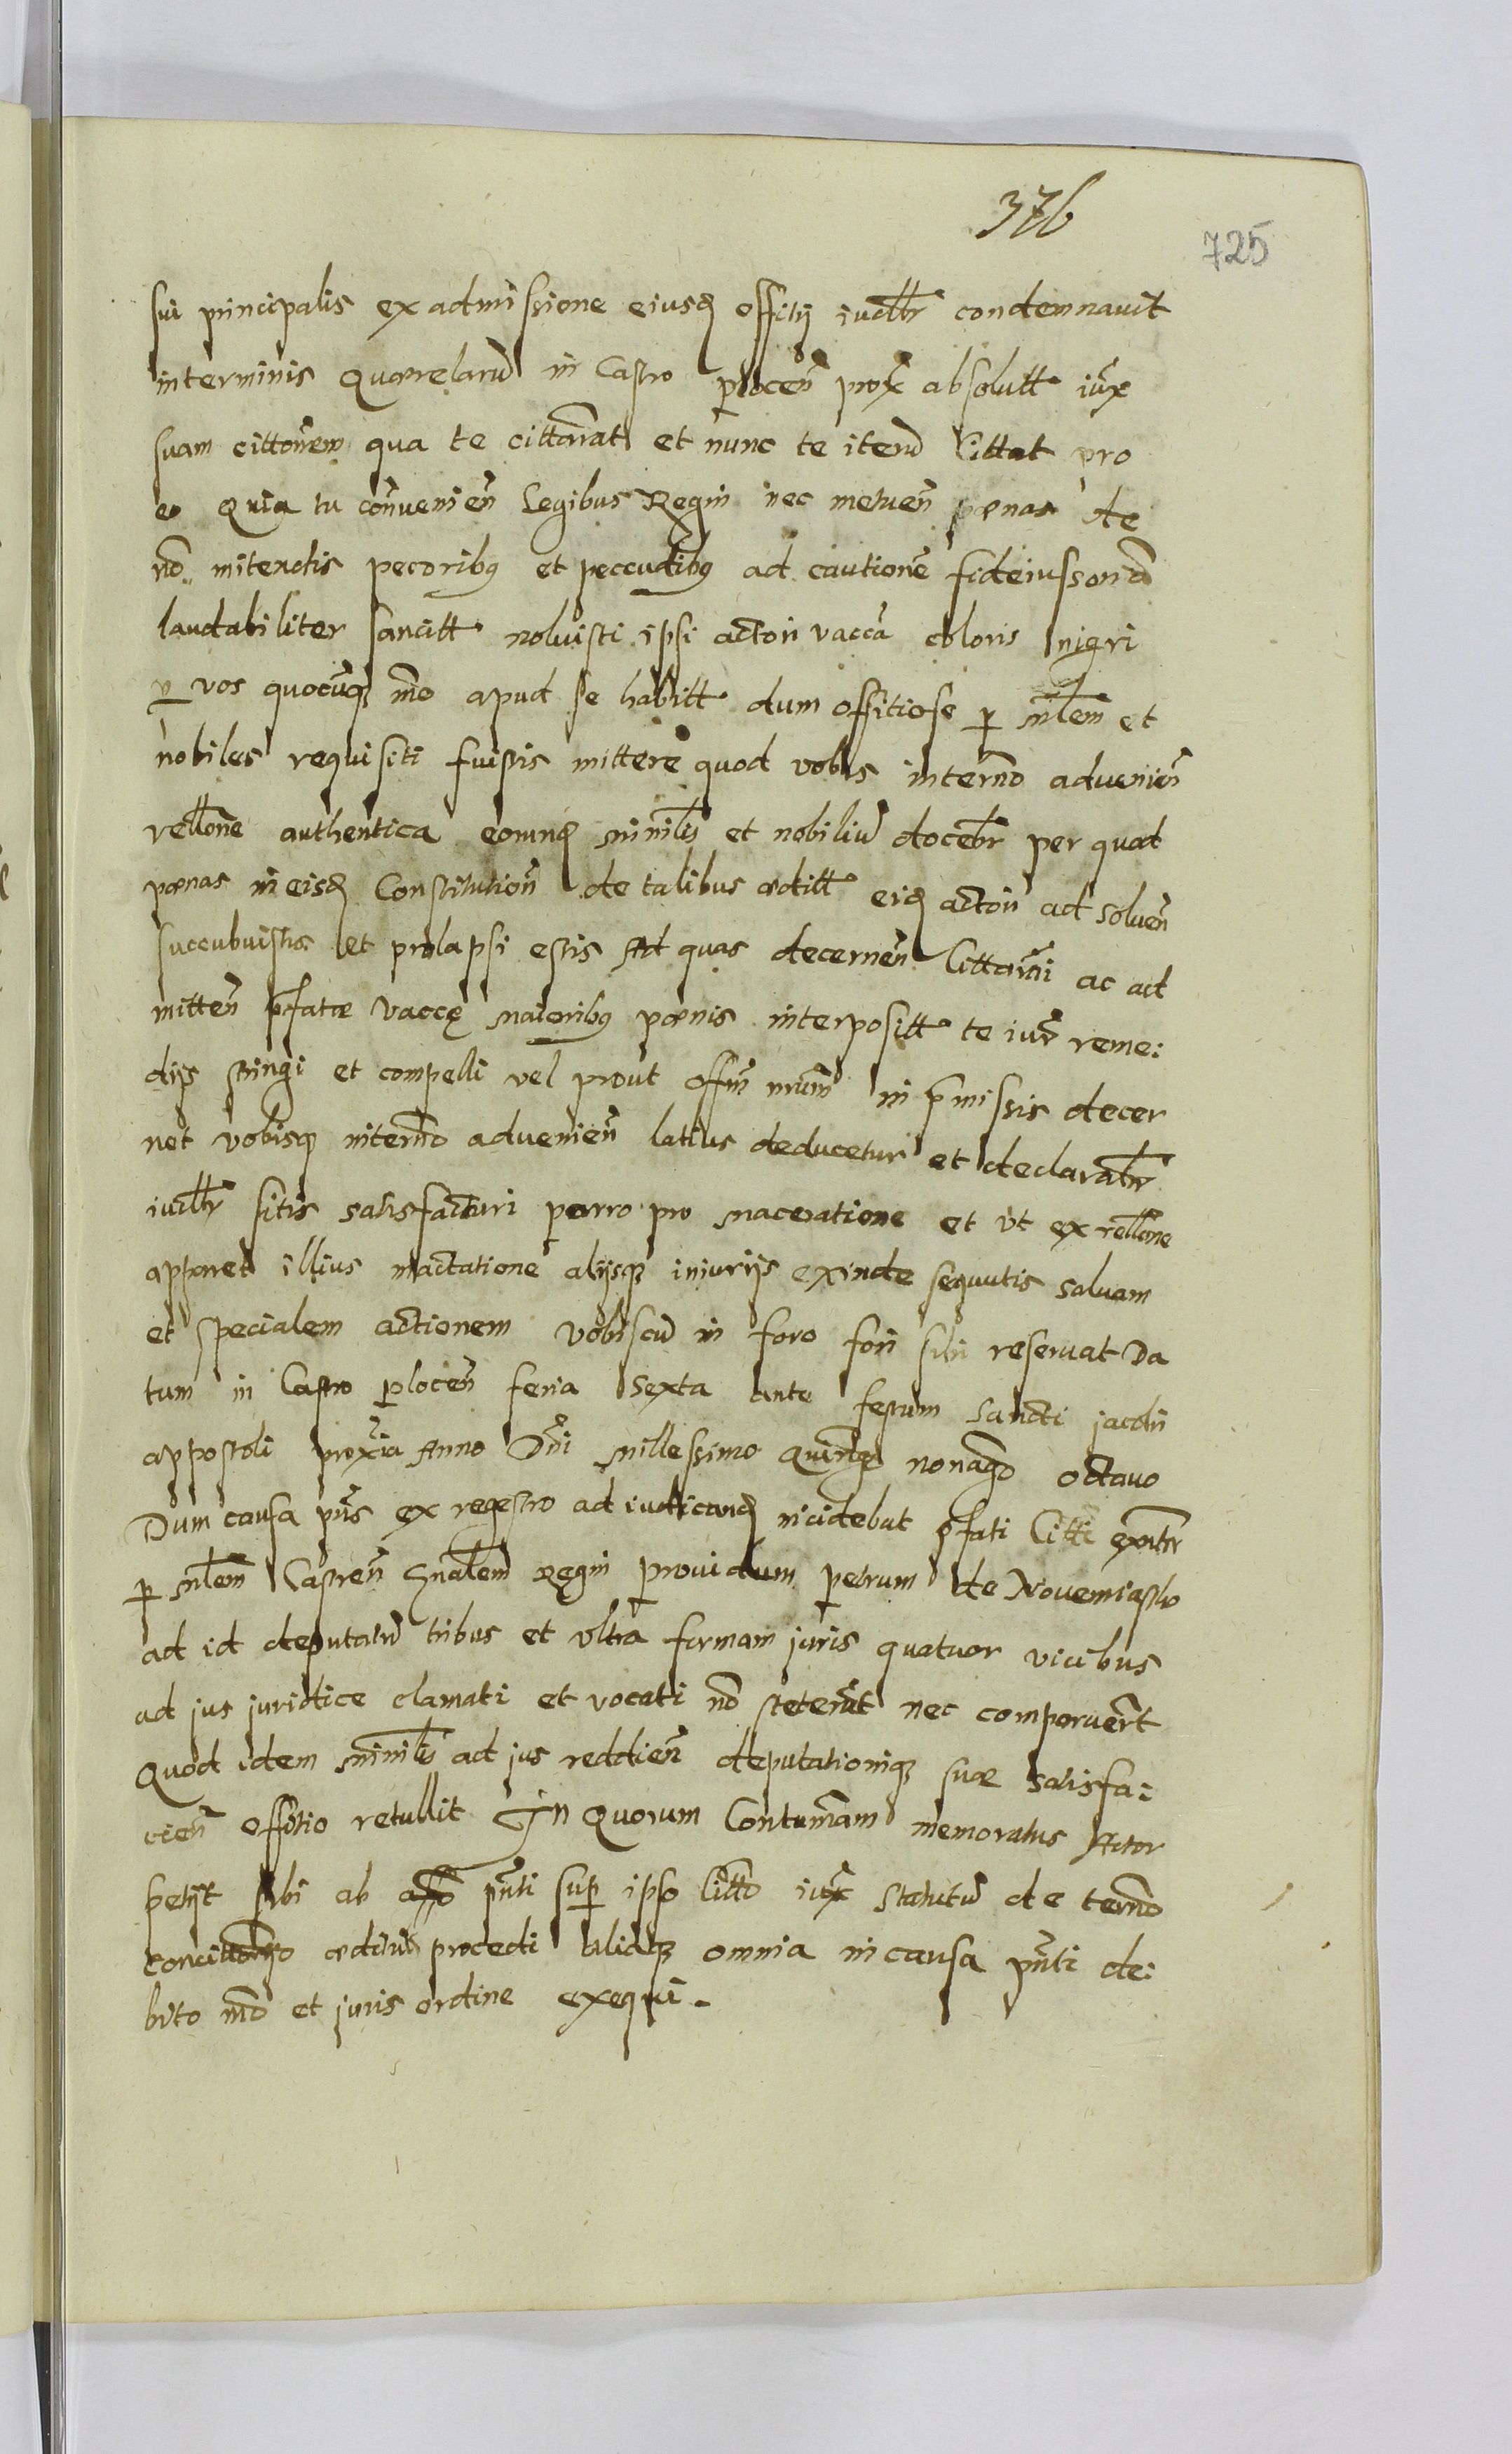 376
725
sui principalis ex admissione eiusd offitij iudltr condemnauit
interminis Quaerelarū in Castro plocen̄ prox̄ absolutt iux̄
suam cittōnem qua te cittarat et nunc te iterū Cittat pro
eo Quia tu con̄uenien̄ Legibus Regni nec metuen̄ poenas de
nō mitendis pecoribꝫ et peccudibꝫ ad cautionē fideiussoriā
laudabiliter sancitt noluisti ipsi actori vaccā coloris nigri
p vos quocūqꝫ mō apud se habitt dum offitiose p mlem̄ et
nobiles requisiti fuistis mittere quod vobis intermō aduenien̄
rellōne authentica eorundē minilis et nobiliū docebr̄ per quod
poenas in eisd Constitution̄ de talibus aeditt eid actori ad soluen̄
succubuistis et prolapsi estis Ad quas decernen̄ Cittarai ac ad
mitten̄ p̄fatae Vaccę maioribꝫ poenis interpositt te iur̄ reme:
dijs stringi et compelli vel prout offm̄ nrūm in p̄missis decer
net vobisqꝫ intermō aduenien̄ latius deducetur et declarabr̄
iudltr sitis satisfacturi porro pro maceratione et vt ex rellōne
apparet illius mactatione alijsqꝫ iniurijs exinde sequutis saluam
et specialem actionem vobiscū in foro fori sibi reseruat Da
tum in Castro plocen̄ feria sexta ante festum sancti jacobi
appostoli prox̄ia Anno Dn̄i millessimo Quingō nonagō octauo
Dum causa pn̄s ex regestro ad iudicand incidebat p̄fati Citti
p mlem̄ Castren̄ Gn̄alem Regni prouidum petrum de Nouemiasto
ad id deputatū tribus et vltra formam juris quatuor vicibus
ad jus juridice clamati et vocati nō steterūt nec comparuerūt
Quod idem minilis ad jus reddien̄ deputationiqꝫ suae satisfa:
cien̄ offitio retullit In Quorum Contumam̄ memoratus Actor
petijt sibi ab offō pn̄ti sup ipso Cittō iux̄ statutū de termō
aeditū procedi aliaqꝫ omnia in causa pn̄ti de:
bito mō et juris ordine exequi.